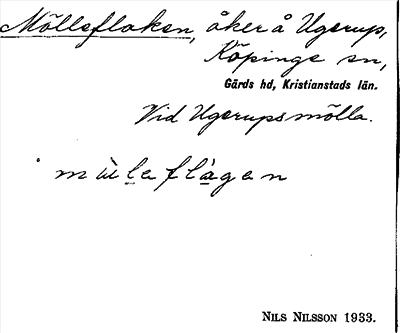 Möllefloken, åker å Ugerup,
Köpinge sn,
Gärds hd, Kristianstads län.
Vid Ugerupsmölla.
NILS NILSSON 1933.